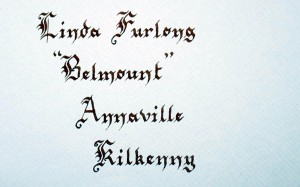 Linda Furlong
"Belmount"
Annaville
Kilkenny